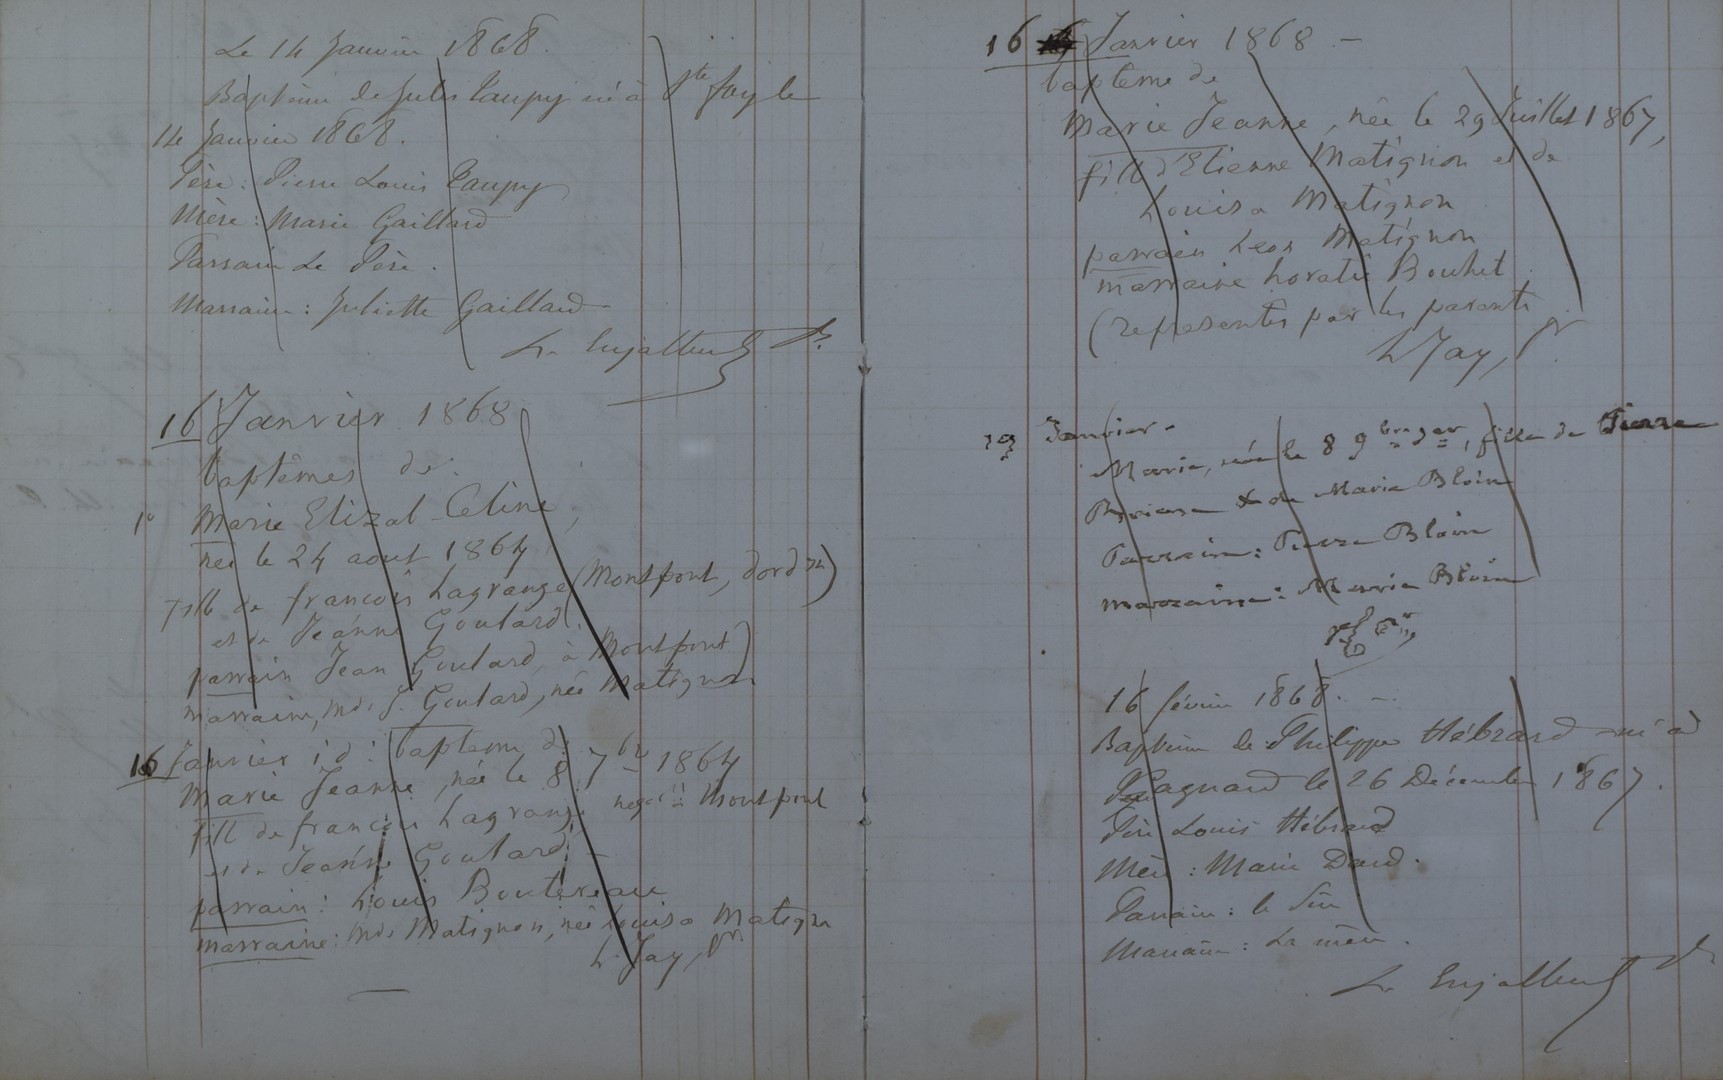 Le 14 Janvier 1868.
Baptême de Jules Paupy né à Ste Foy le
14 Janvier 1868.
Père : Pierre Louis Paupy
Mère : Marie Gaillard
Parrain Le Père.
Marraine : Juliette Gaillard
L. Enjalbert Pr.
16 Janvier 1868
baptêmes de
1° Marie Elizab Celine,
née le 24 aout 1864
fille de françois Lagrange (Montpont, dordne)
et de Jeanne Goulard.
parrain Jean Goulard, à Montpont)
marraine, Mde J. Goulard, née Matignon
16 Janvier id : baptême de
Marie Jeanne, née le 8 7bre 1864
fille de françois Lagrange Montpont
et de Jeanne Goulard
parrain : Louis Boutereau
marraine : Mde Matignon, née Louisa Matign
L. Jay, Pr
16 Janvier 1868 –
baptême de
Marie Jeanne, née le 29 Juillet 1867,
fille d'Etienne Matignon et de
Louisa Matignon
parrain Leon Matignon
marraine Bouhet
(representés par les parents
L Jay, Pr
19 Janvier.
Marie, née le 8 9bre, fille de Pierre
& de Marie Bloin
Parrain : Pierre Bloin
marraine : Marie Bloin
16 février 1868. –
Baptême de Philippe Hébrard né à
le 26 Décembre 1867.
Père Louis Hébrard
Mère : Marie
Parrain : le
Marraine : La mère.
L. Enjalbert Pr